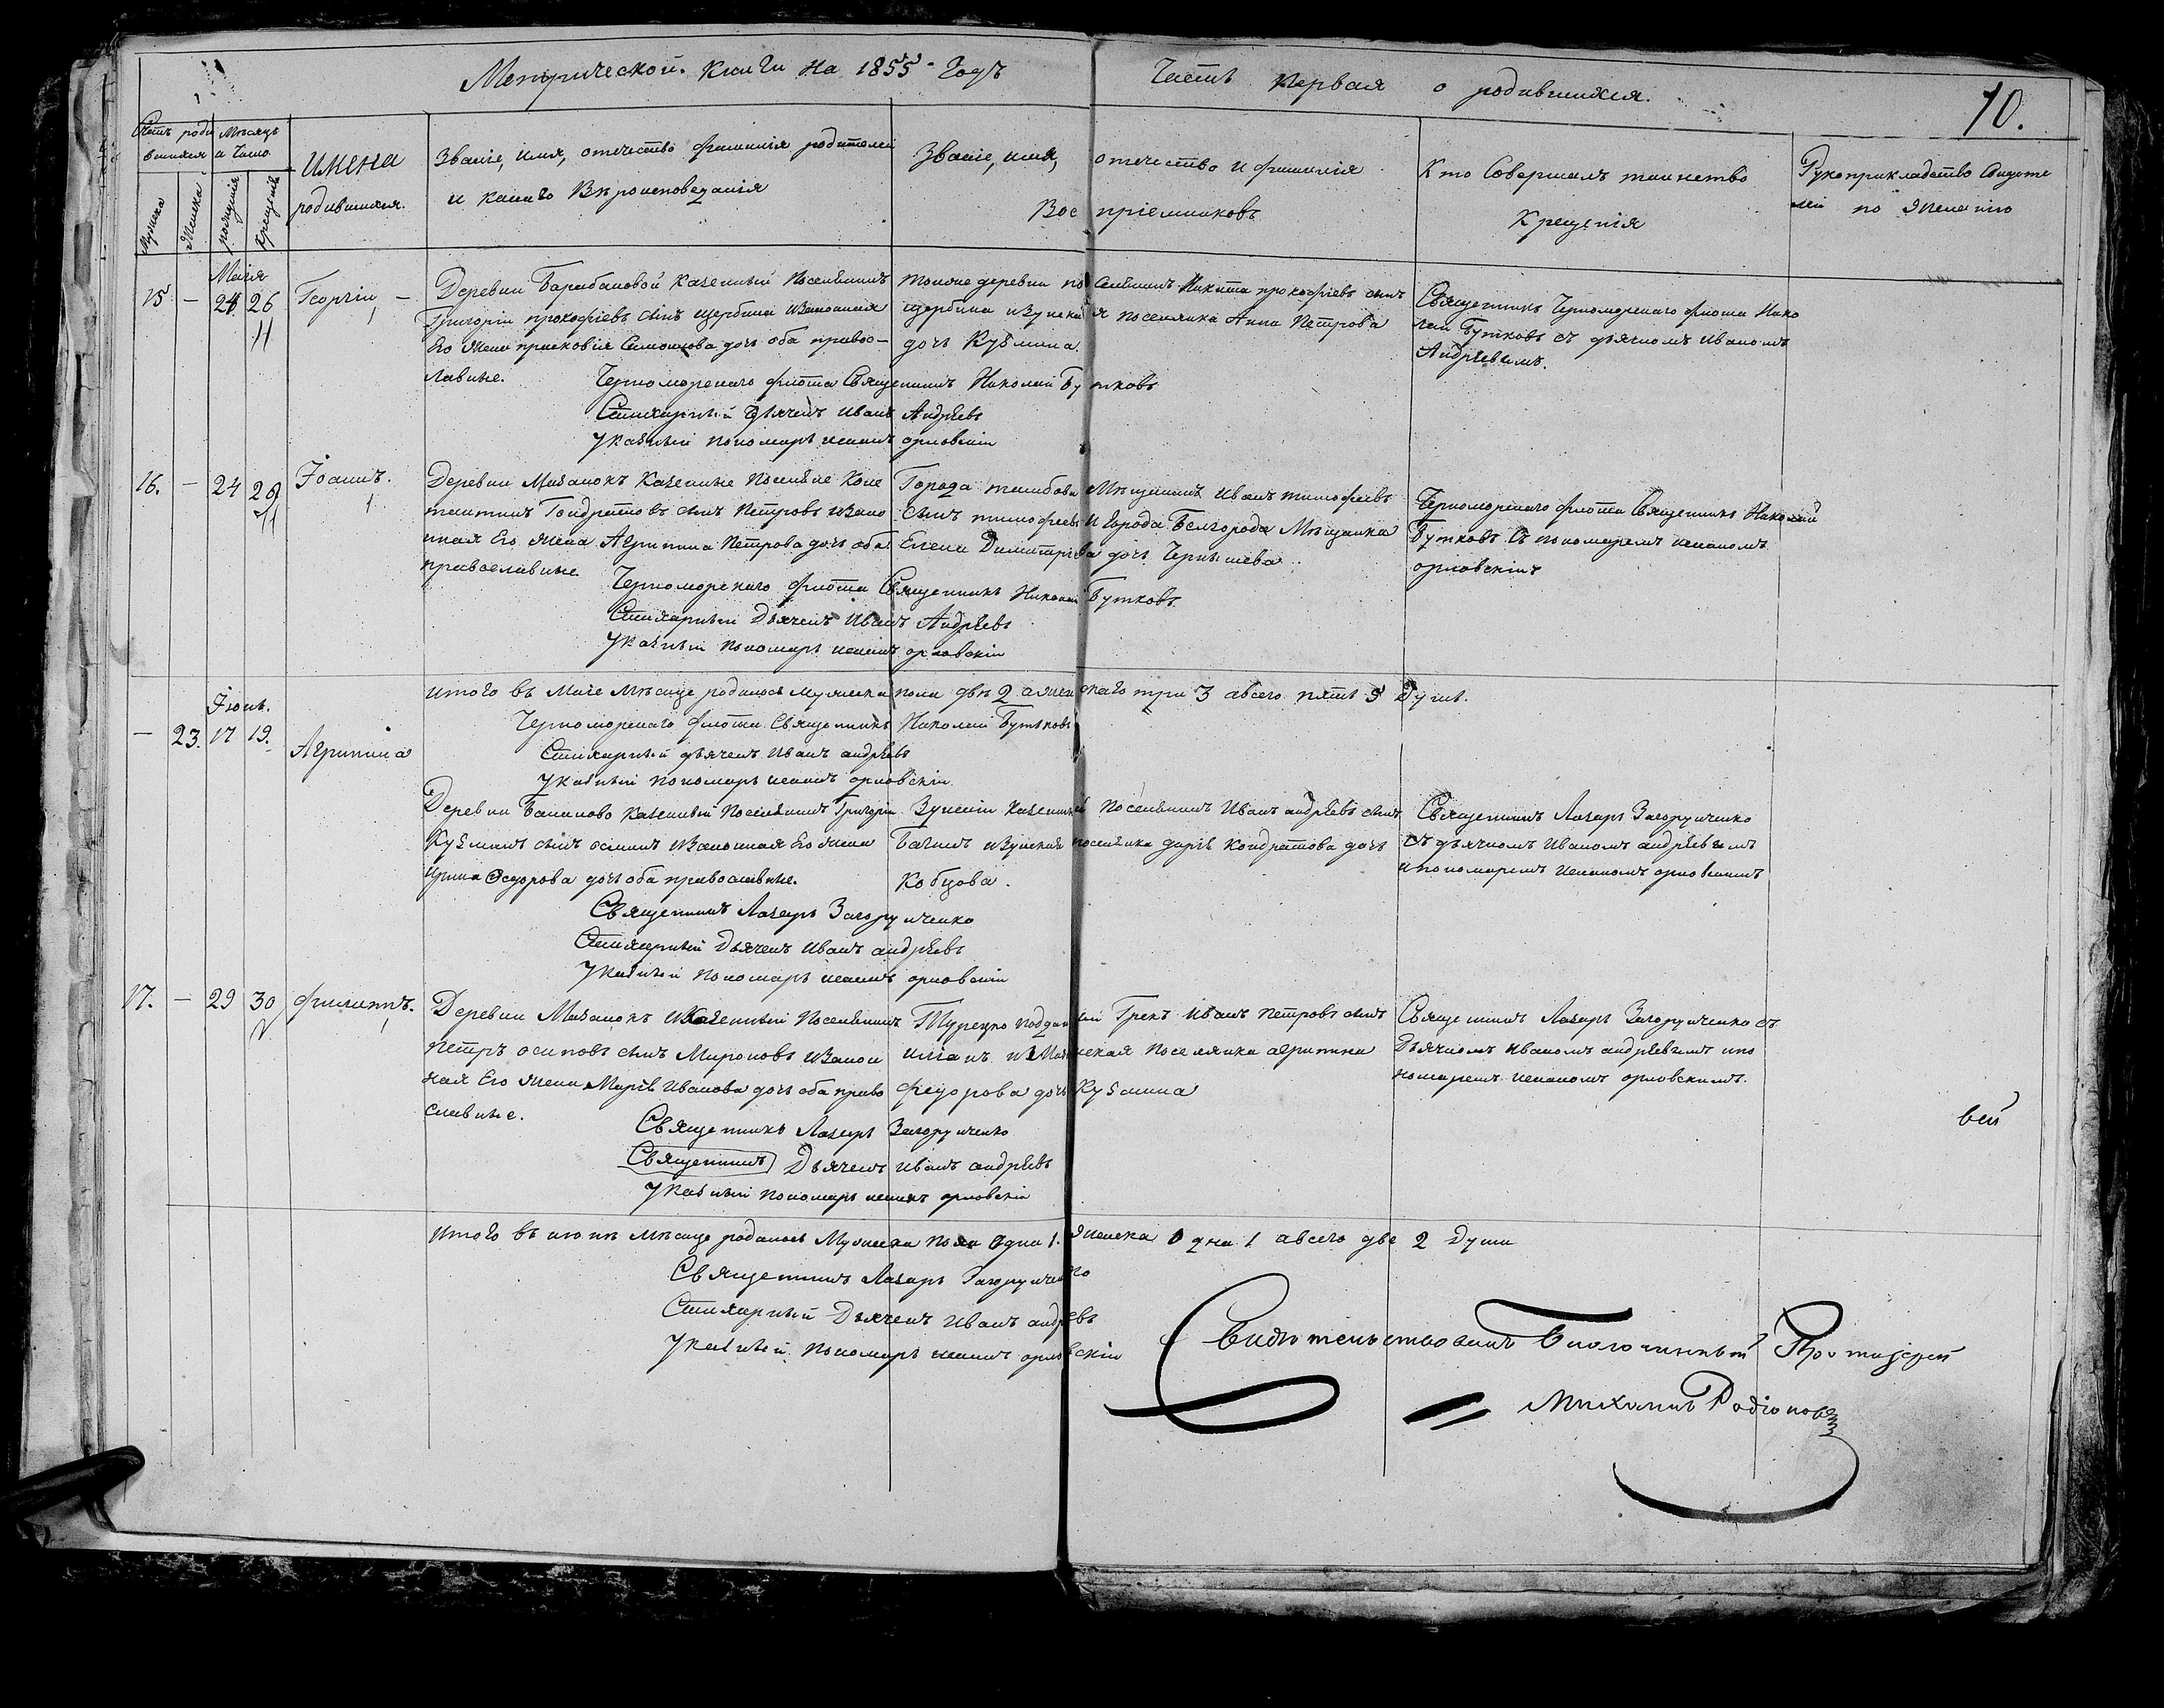 Метрической Книги на 1855 годъ Часть первая о родившихся.
10.
Счетъ роди
вшихся
Месяцъ
и число
Мужска
Женска
рождения
крещения
Имена
родившихся.
Званіе, имя, отечество фамилія родителей
и какого Вѣроисповеданія
Званіе, имя, отечество и фамилія
Воспріемниковъ
Кто Совершалъ таинство
Крещенія
Рукоприкладство Свидете
лей по Желанію
Маія
15 — 24 26 Георгій
Деревни Барабановой Казенный Поселянинъ
Григорій прокофіевъ сынъ щербина и Законная
Его Жена прасковія Симонова дочь оба право-
лавные.
тойже деревни поселянинъ Никита прокофіевъ сынъ
щербина и Зуйска я поселянка Анна Петрова
дочь Кузмина.
Священникъ Черноморскаго флота Нико
лай Бутковъ съ дьячкомъ Иваномъ
Андрѣевымъ.
Черноморскаго флота Священникъ Николай Бутковъ
Стихарный дьячекъ Иванъ Андрѣевъ
Указный пономарь орловскій
16. — 24 Іоаннъ.
Деревни Мазанокъ Казенные Поселяне Конс
тантинъ Гондратовъ сынъ Петровъ и Зако
нная Его Жена Агрипина Петрова дочь оба
православные
Города тамбова Мещанинъ Иванъ тимофеевъ
сынъ тимофеевъ и города Белгорода Мѣщанка
Елена Димитріева дочь Чернышева
Черноморскаго флота Священникъ Николай
Бутковъ Съ пономаремъ
орловскимъ
Черноморскаго флота Священникъ Николай Бутковъ
Стихарный Дьячекъ Иванъ Андрѣевъ
Указный пономарь орловскій
итого въ Маіе Мѣсяце родилось мужеска пола два 2 а женскаго три 3 а всего пять 5 Душъ.
Черноморскаго флота Священникъ Николай Бутковъ
Стихарный дьячекъ Иванъ андрѣевъ
Указный пономарь орловскій
Іюнь.
— 23. 17 19. Агрипина
Деревни Казенный Поселянинъ Григорій
Кузминъ сынъ и Законная Его жена
ирина Федорова дочь оба православные.
Зуйскій Казенный поселянинъ Иванъ андрѣевъ сынъ
и Зуйская поселянка дарія кондратова дочь
Кобцова.
Священникъ Лазарь Загоруиченко
съ дьячкомъ Иваномъ андрѣевымъ
и пономаремъ орловскимъ
Священникъ Лазарь Загоруиченко
Стихарный Дьячекъ Иванъ андрѣевъ
Указный пономарь орловскій
17. — 29 30 филиппъ.
Деревни Мазанокъ Казенный Поселянинъ
Петръ осиповъ сынъ Мироновъ и Закон
ная Его Жена Марія Иванова дочь оба право
славные.
Турецко подданный Грекъ Иванъ Петровъ сынъ
и Мазанская поселянка агрипина
федорова дочь Кузмина
Священникъ Лазарь Загоруиченко съ
Дьячкомъ Иваномъ андрѣевымъ и по
номаремъ орловскимъ.
вей
Священникъ Лазарь Загоруиченко
Священникъ Дьячекъ Иванъ андрѣевъ
Указный пономарь орловскій
итого въ июне Мѣсяце родилось Мужеска пола один 1. Женска одна 1 а всего две 2 Души
Священникъ Лазарь Загоруиченко
Стихарный Дьячекъ Иванъ андрѣевъ
Указный пономарь орловскій
Свидѣтельствовалъ Благочинный Протоіерей
Михаилъ Родіоновъ